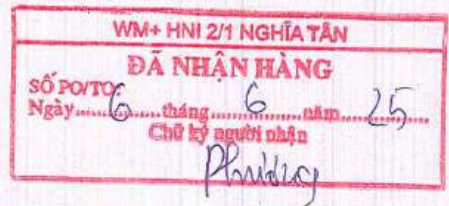 WM+ HNI 2/1 NGHĨA TÂN
ĐÃ NHẬN HÀNG
SỐ PO/TO
Ngày 6 tháng 6 năm 25
Chữ ký người nhận
Phương